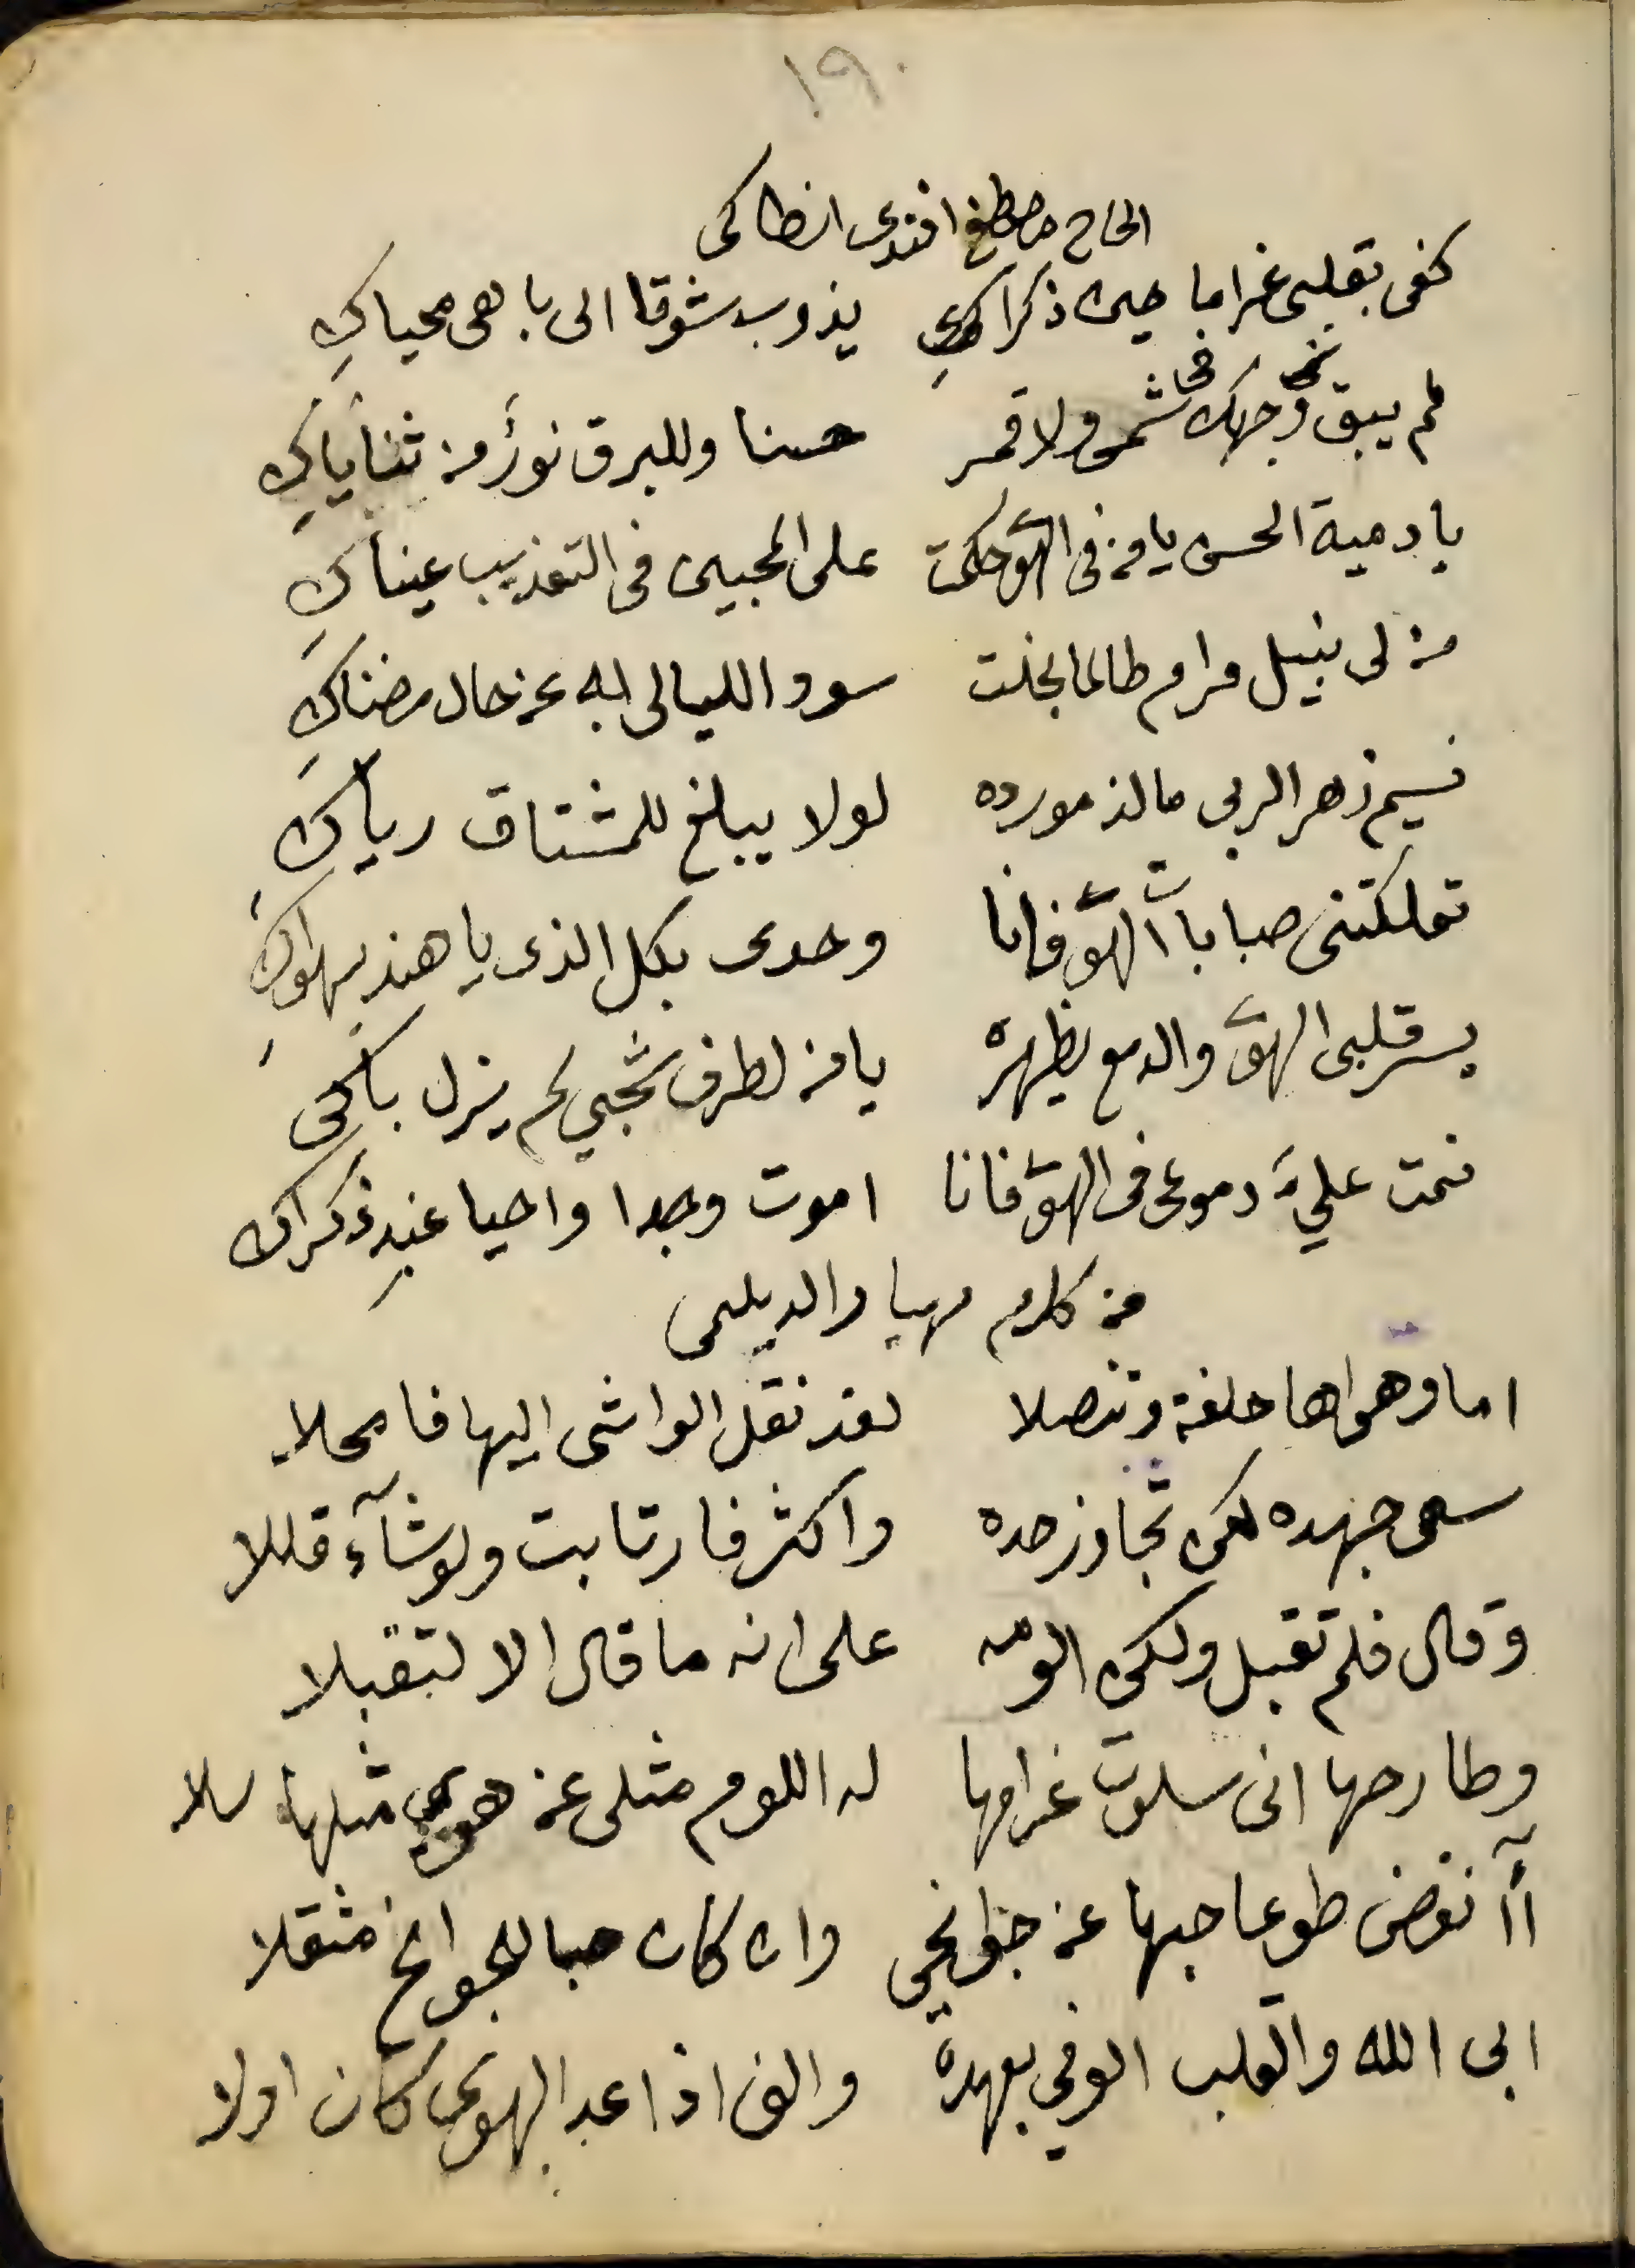 ١٩٠
الحاج مصطفى افندى انطاكى
كفى بقلبى غراما حين ذكراك يذوب شوقا الى باهى محياكِ
لم يبق وجهك فى شمس ولا قمر حسنا وللبرق نورٌ من ثناياكِ
يا دمية الحسن يا من فى الهوى حكمت على المحبين فى التعذيب عيناكِ
من لى بنيل مرام طالما بخلت سود الليالى به عن حال مضناكِ
نسيم زهر الربى ما لذ مورده لولا يبلغ للمشتاق رياكِ
تملكتنى صبابات الهوى فانا وحدى بكل الذى يا هند يهواكِ
يسر قلبى الهوى والدمع يظهره يا من لطرف شجي لم يزل باكى
نمت عليَّ دموعى فى الهوى فانا اموت وجدا واحيا عند ذكراكِ
من كلام مهيار الديلمى
اما وهواها حلفة وتنصلا لقد نقل الواشى اليها فامحلا
سعى جهده لكن تجاوز حده واكثر فارتابت ولو شآء قللا
وقال فلم تقبل ولكن الومه على انه ما قال الا لتقبلا
وطارحها انى سلوت غرامها له اللوم مثلى عن هوى مثلها سلا
أآنفض طوعا حبها عن جوانحي وان كان حبا للجوانح مثقلا
ابى الله والقلب الوفي بعهده والف اذا عد الهوى كان اولا